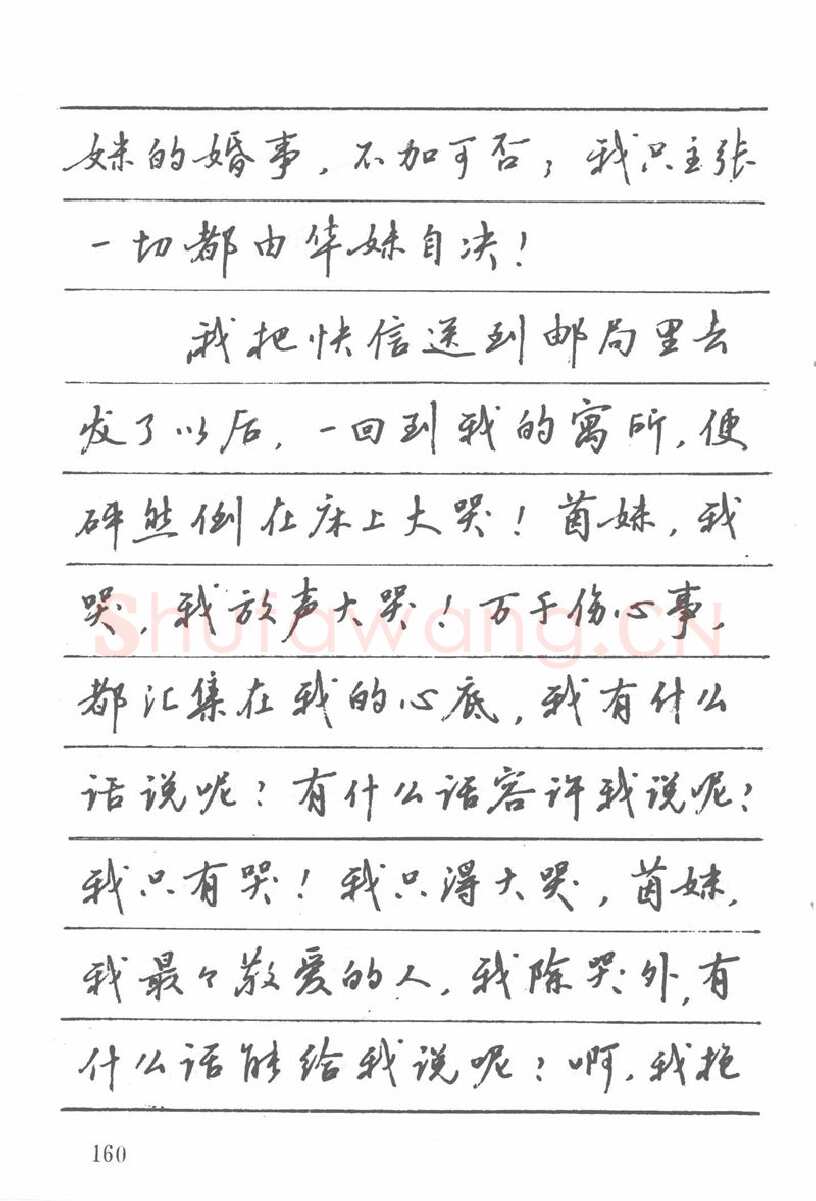 妹的婚事，不加可否；我只主张
一切都由华妹自决！
我把快信送到邮局里去
发了以后，一回到我的寓所，便
砰然倒在床上大哭！茵妹，我
哭，我放声大哭！万千伤心事，
都汇集在我的心底，我有什么
话说呢？有什么话容许我说呢？
我只有哭！我只得大哭，茵妹，
我最々敬爱的人，我除哭外，有
什么话能给我说呢？啊，我抱
160
Shufawang.CN